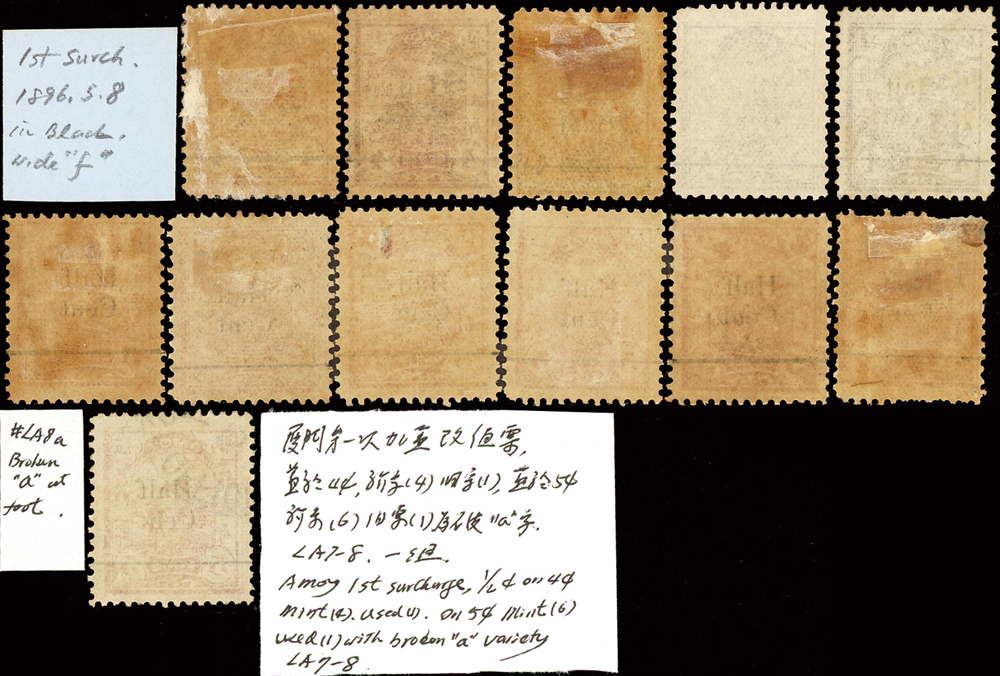 1st Surch.
1896.5.8
in Black,
wide "f"
#LA8a
Broken
"a" at
foot.
廈門第一次加蓋改值票,
蓋於4¢,新票(4)旧票(1),蓋於5¢
新票(6)旧票(1)為破"a"字.
LA7-8. 一組.
Amoy 1st surcharge, 1/2¢ on 4¢
mint(4). used(1). on 5¢ Mint(6)
used(1) with broken "a" variety
LA7-8.
Half
Cent
Half
Cent
Half
Cent
Half
Cent
Half
Cent
Half
Cent